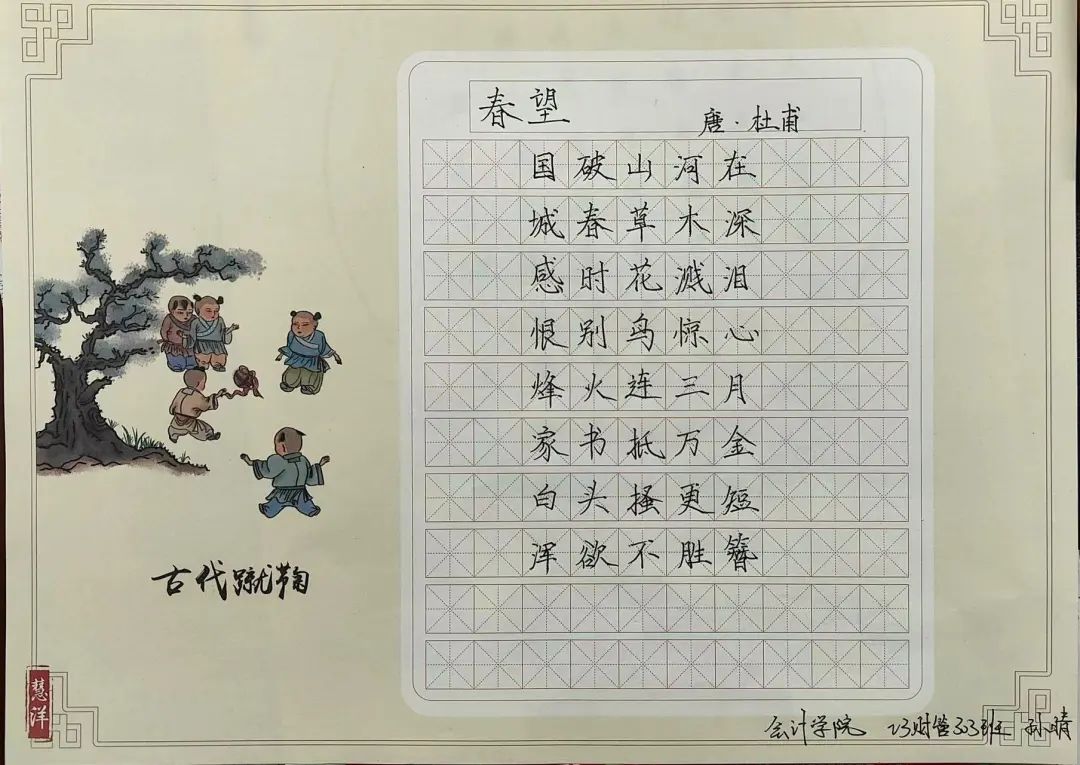 春望
唐·杜甫
国破山河在
城春草木深
感时花溅泪
恨别鸟惊心
烽火连三月
家书抵万金
白头搔更短
浑欲不胜簪
古代蹴鞠
慧洋
会计学院 23财管303班 孙晴